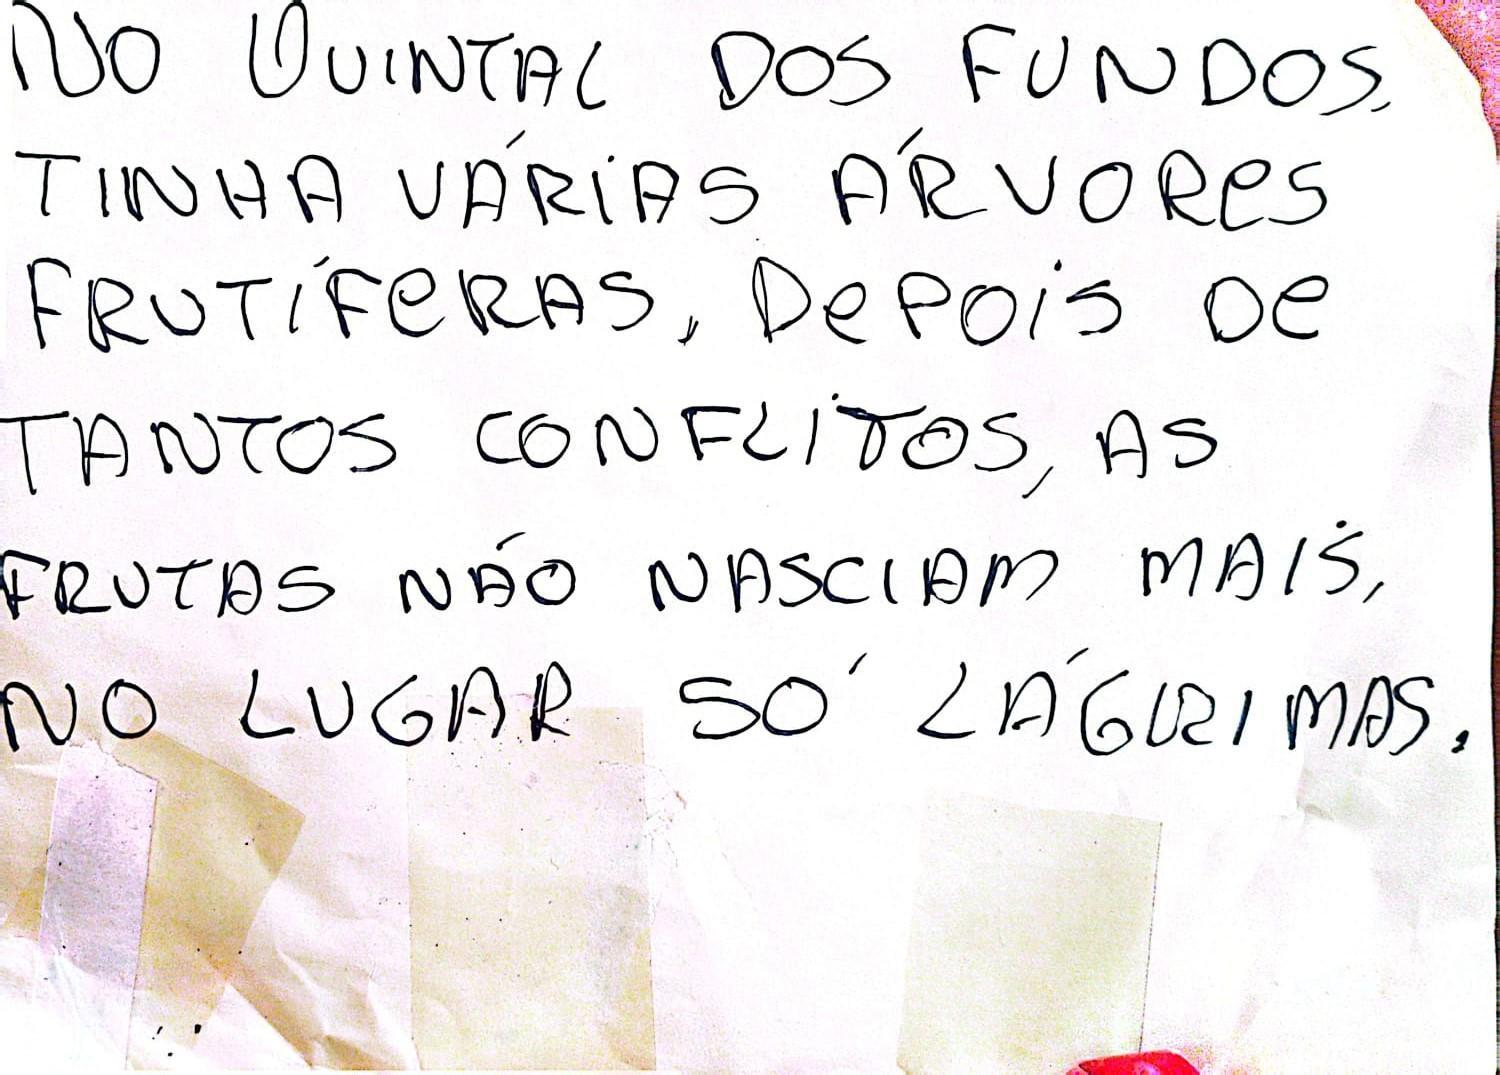 NO QUINTAL DOS FUNDOS,
TINHA VÁRIAS ÁRVORES
FRUTÍFERAS, DEPOIS DE
TANTOS CONFLITOS, AS
FRUTAS NÃO NASCIAM MAIS,
NO LUGAR SÓ LÁGRIMAS.